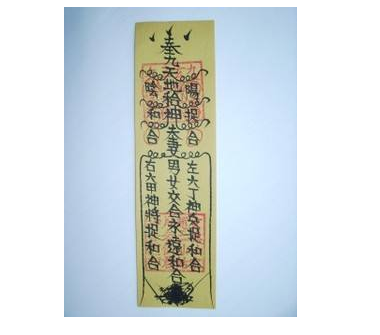 奉九天地神夫妻男女交合永遠和合
陽捉合
陰和合
左六丁神兵捉和合
右六甲神將捉和合